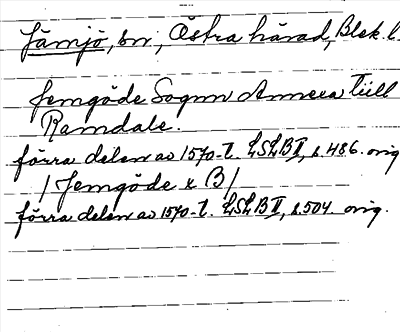 Jämjö, sn, Östra härad, Blek. l.
Jemgöde Sognn Annexa tiill
Ramdale.
förra delen av 1570-t. LSLB II, s. 486. orig
/ Jemgöde x B /
förra delen av 1570-t. LSLB II, s. 504. orig.